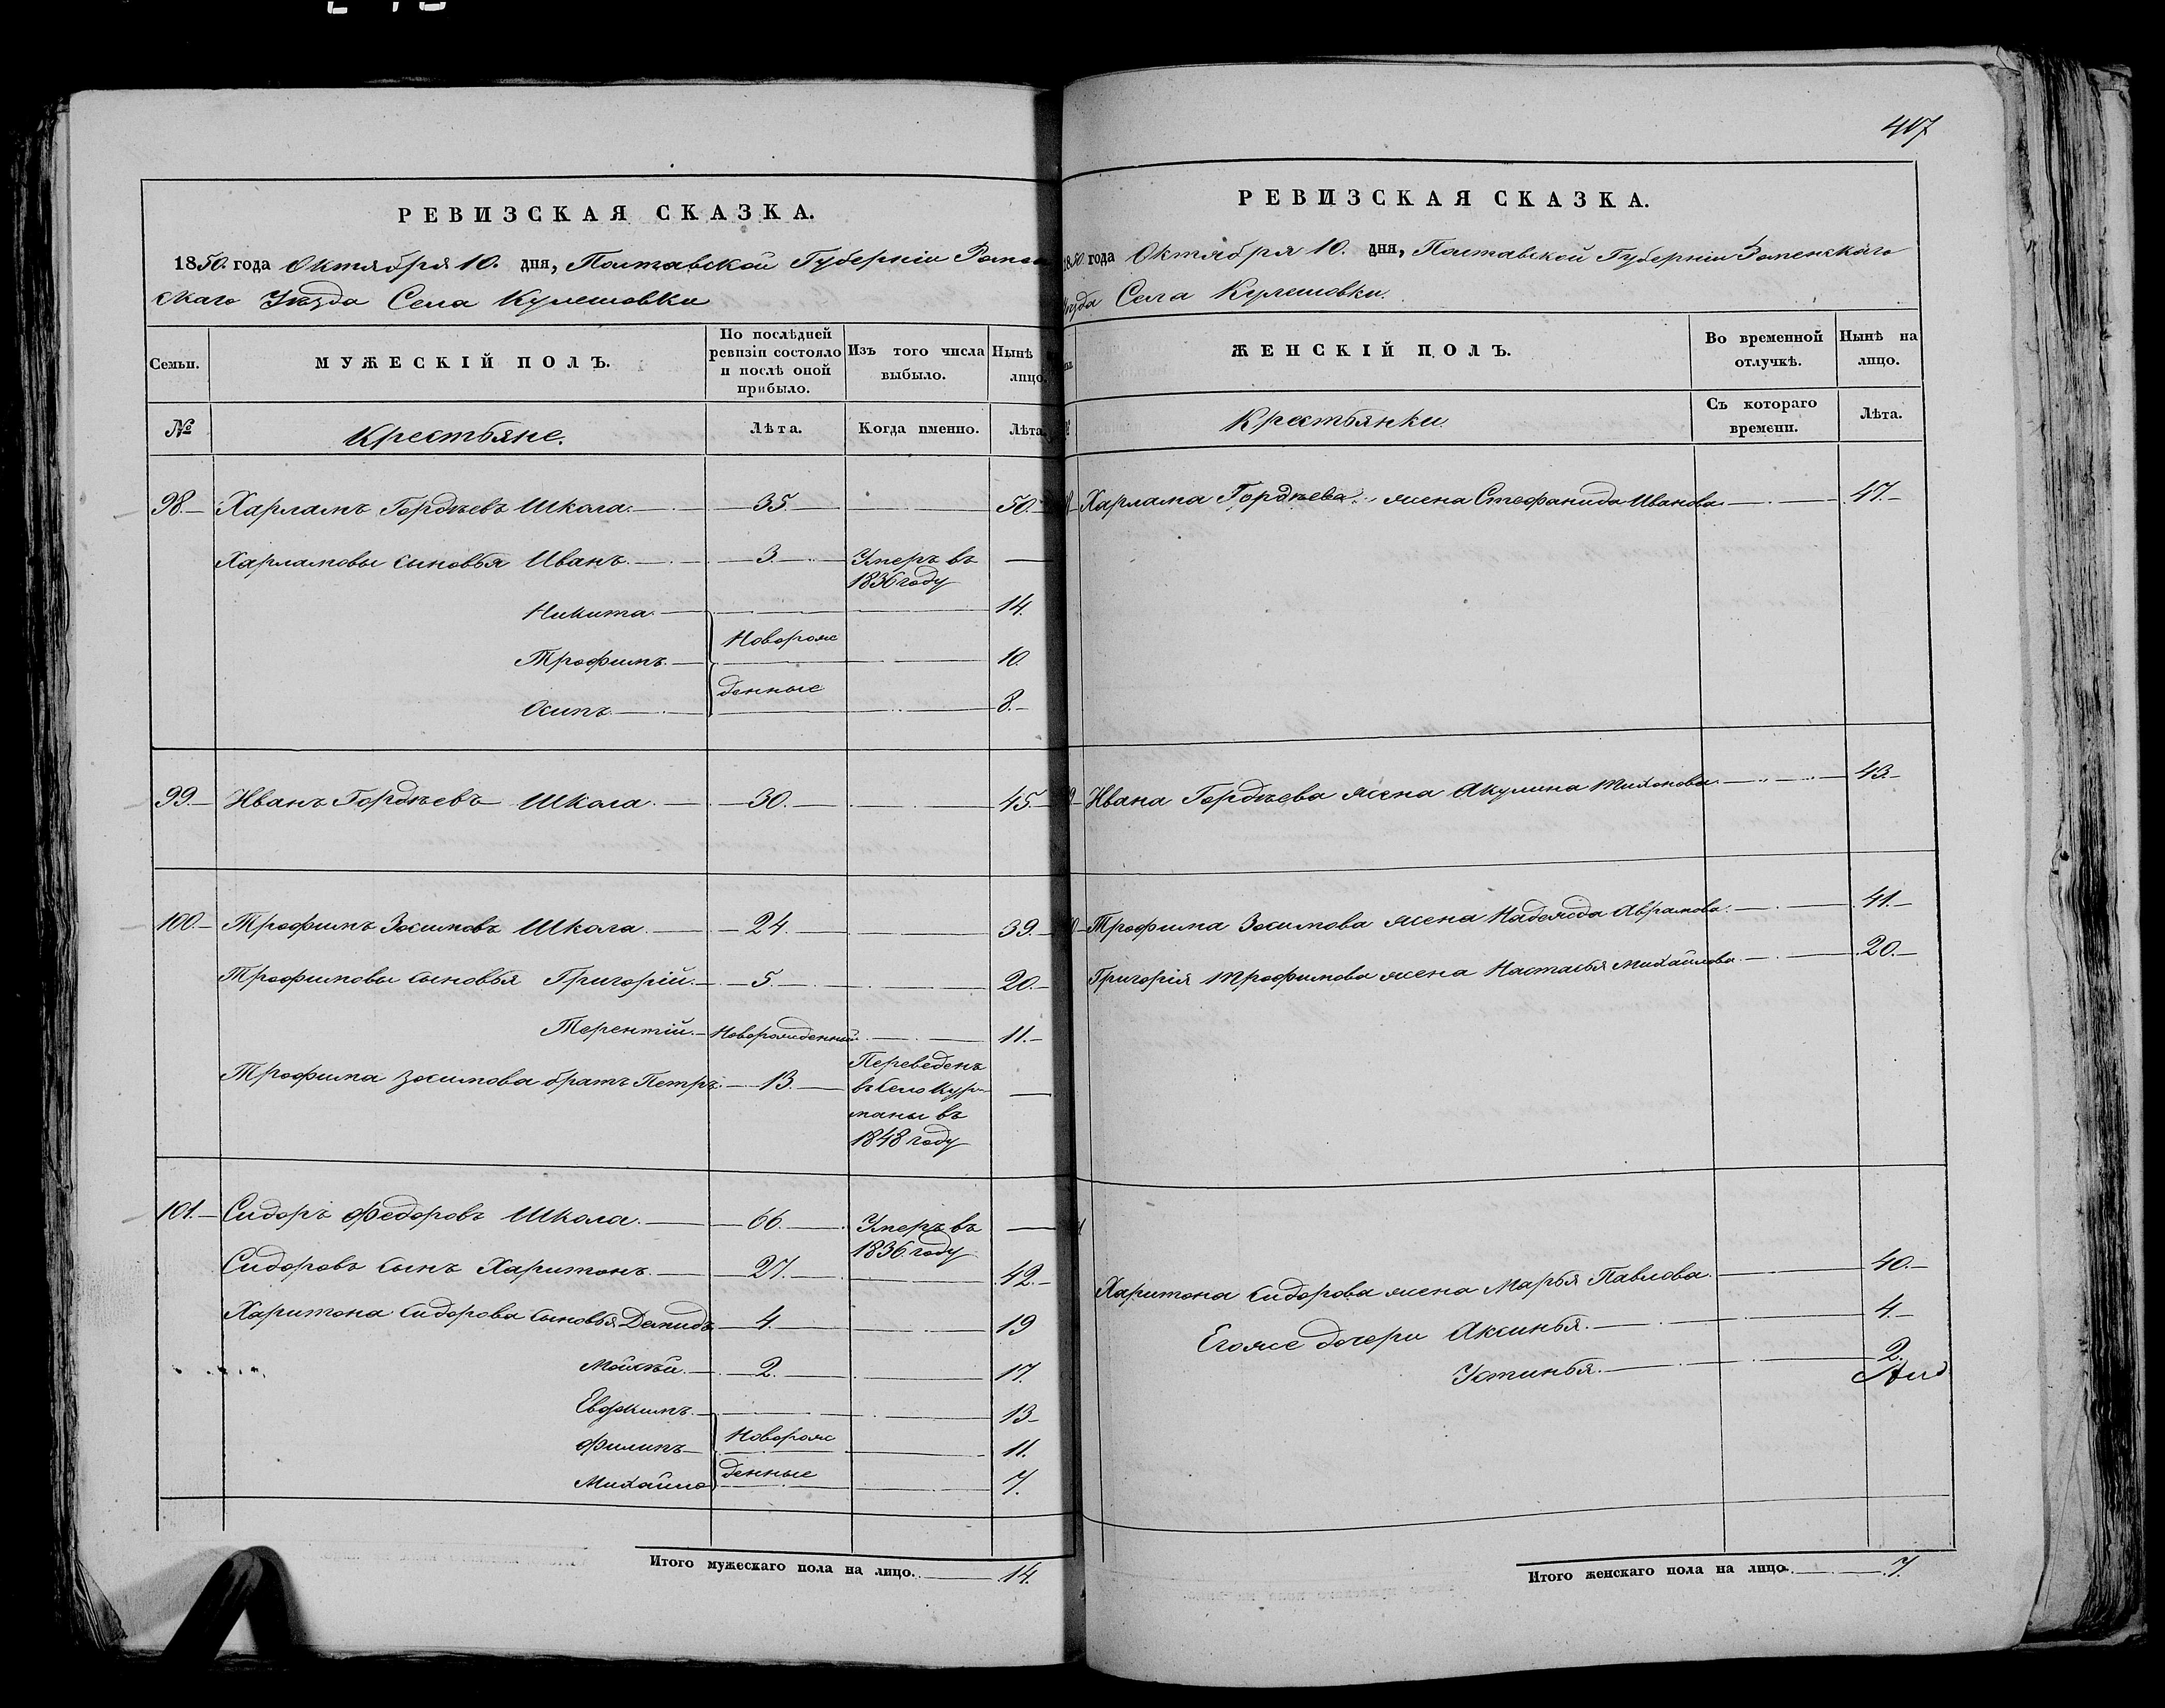 РЕВИЗСКАЯ СКАЗКА.
1850. года Октября 10. дня, Полтавской Губерніи Ромен
скаго Уѣзда Села Кулешовки
Семьи.
МУЖЕСКІЙ ПОЛЪ.
По послѣдней ревизіи состояло и послѣ оной прибыло.
Изъ того числа выбыло.
Нынѣ лицо.
№
Крестьяне.
Лѣта.
Когда именно.
Лѣта.
98. Харламъ Гордѣевъ Школа. 35 50.
Харламовы сыновья Иванъ. 3. Умеръ въ
1836 году
Никита. 14.
Новорож
Трофимъ. 10.
денные
Осипъ. 8.
99. Иванъ Гордѣевъ Школа. 30. 45.
100. Трофимъ Зосимовъ Школа. 24. 39.
Трофимовы сыновья Григорій. 5. 20.
Терентій. Новорожденный. 11.
Трофима Зосимова братъ Петръ. 13. Переведенъ
въ село Кур
маны въ
1848 году
101. Сидоръ Федоровъ Школа. 66. Умеръ въ
1836. году
Сидоровъ сынъ Харитонъ. 27. 42.
Харитона Сидорова сыновья Демидъ 4. 19
Мойсѣй. 2. 17.
Евфимъ. 13
Филипъ Новорож 11.
денные
Михайло 7.
Итого мужескаго пола на лицо. 14.
417
РЕВИЗСКАЯ СКАЗКА.
1850 года Октября 10. дня, Полтавской Губерніи Роменскаго
Уѣзда Села Кулешовки.
ЖЕНСКІЙ ПОЛЪ.
Во временной отлучкѣ.
Нынѣ на лицо.
Крестьянки
Съ котораго времени.
Лѣта.
Харлама Гордѣева жена Стефанида Иванова 47.
Ивана Гордѣева жена Акулина Тихонова. 43.
Трофима Зосимова жена Надежда Аврамова. 41.
Григорія Трофимова жена Настасья Михайлова. 20.
Харитона Сидорова жена Марья Павлова. 40.
Егоже дочери Аксинья. 4.
Устинья. 2.
Итого женскаго пола на лицо. 7.